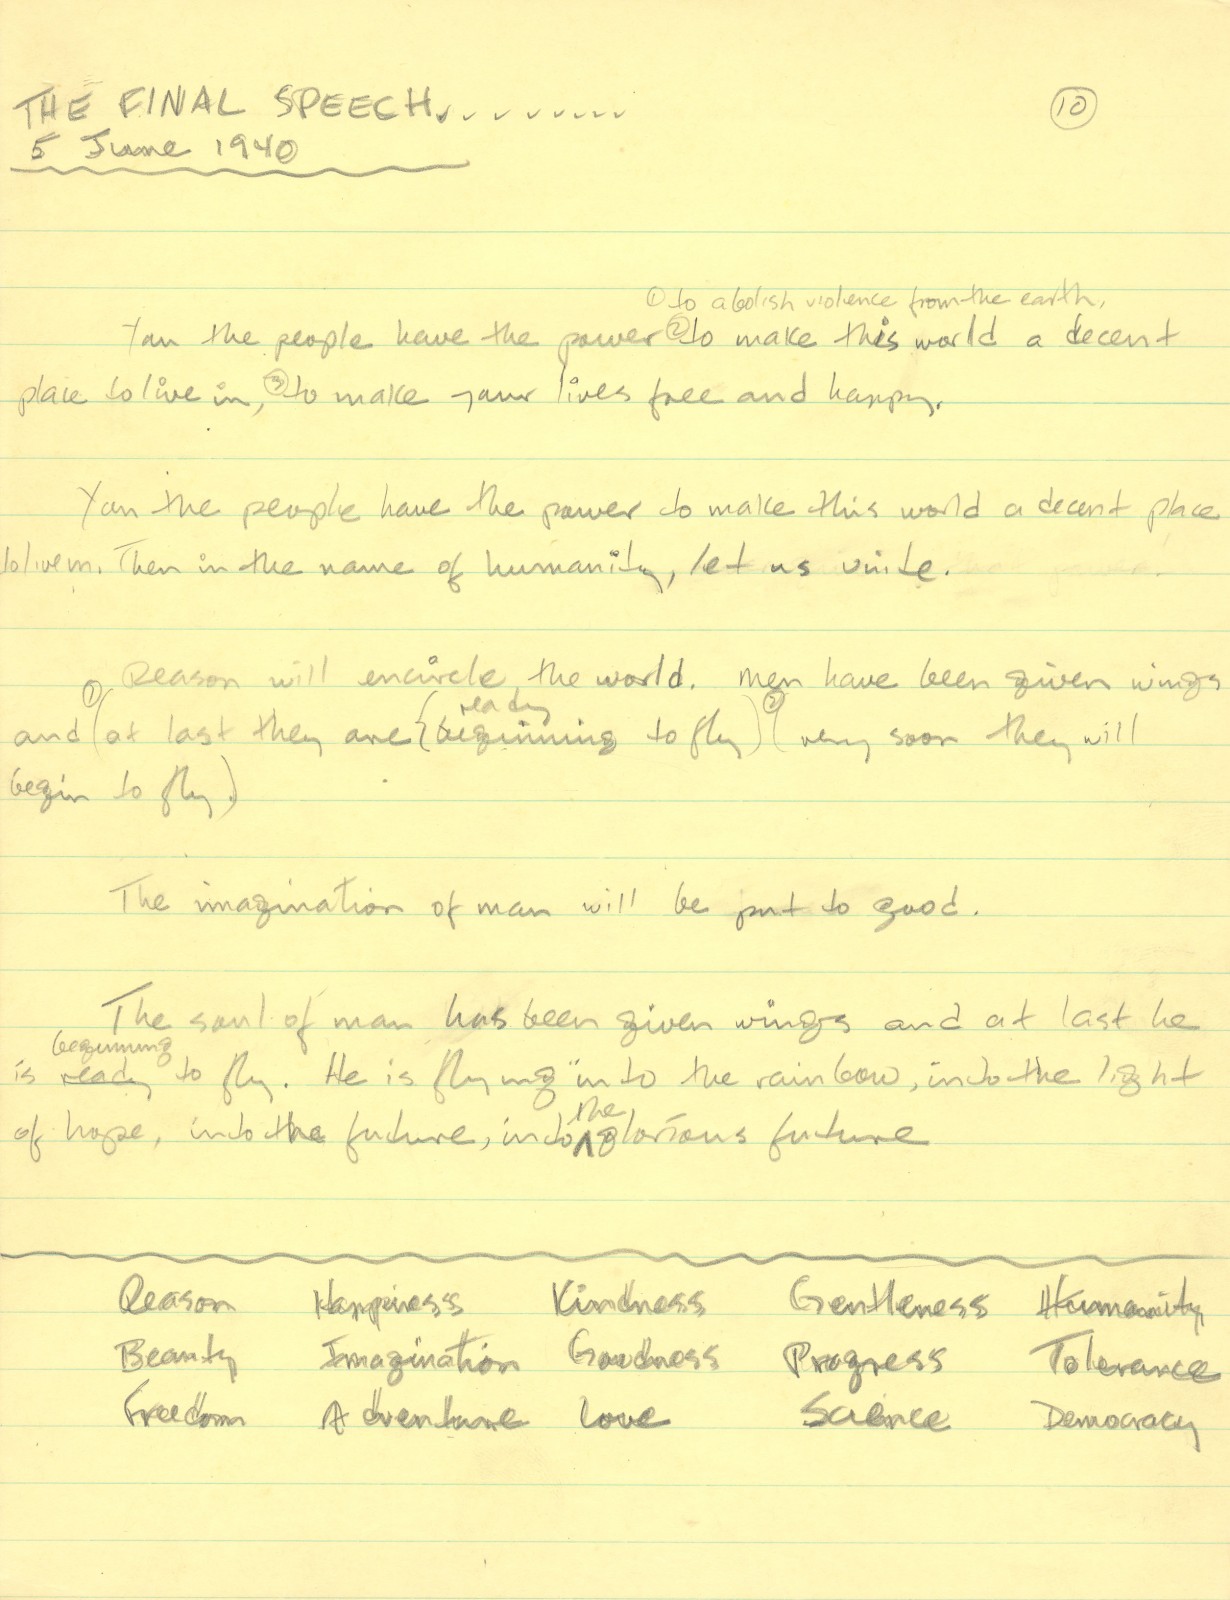 THE FINAL SPEECH..........
10
5 June 1940
① to abolish violence from the earth,
You the people have the power ② to make this world a decent
place to live in, ③ to make your lives free and happy.
You the people have the power to make this world a decent place
to live in. Then in the name of humanity, let us unite.
Reason will encircle the world. Men have been given wings
ready
and ① (at last they are {beginning to fly) ② (very soon they will
begin to fly.)
The imagination of man will be put to good.
The soul of man has been given wings and at last he
beginning
is ready to fly. He is flying into the rainbow, into the light
the
of hope, into the future, into glorious future
Reason Happiness Kindness Gentleness Humanity
Beauty Imagination Goodness Progress Tolerance
Freedom Adventure Love Science Democracy